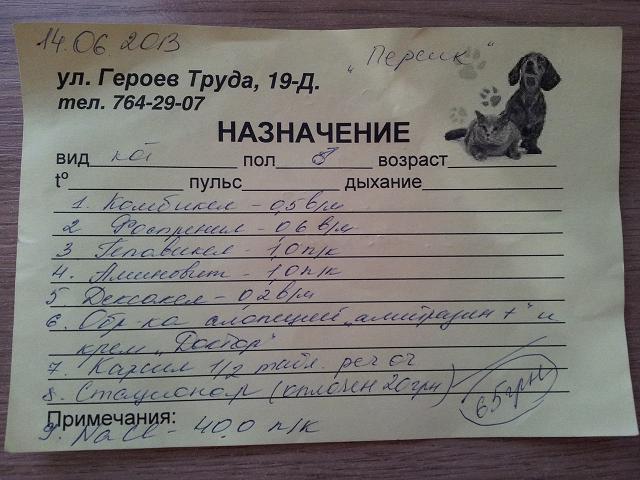 14.06 2013
"Персик"
ул. Героев Труда, 19-Д.
тел. 764-29-07
НАЗНАЧЕНИЕ
вид кот пол ♂ возраст
t° пульс дыхание
1. Комбикел - 0,5 в/м
2 Фоспренил - 0,6 в/м
3 Гепавикел - 1,0 п/к
4. Аминовит - 1,0 п/к
5 Дексакел - 0,2 в/м
6. Обр-ка алопеций "амитразин +" и
крем "Доктор"
7. Карсил 1/2 табл. per os
8. Стационар (оплочен 20грн) 65грн
Примечания:
9. NaCl - 40,0 п/к